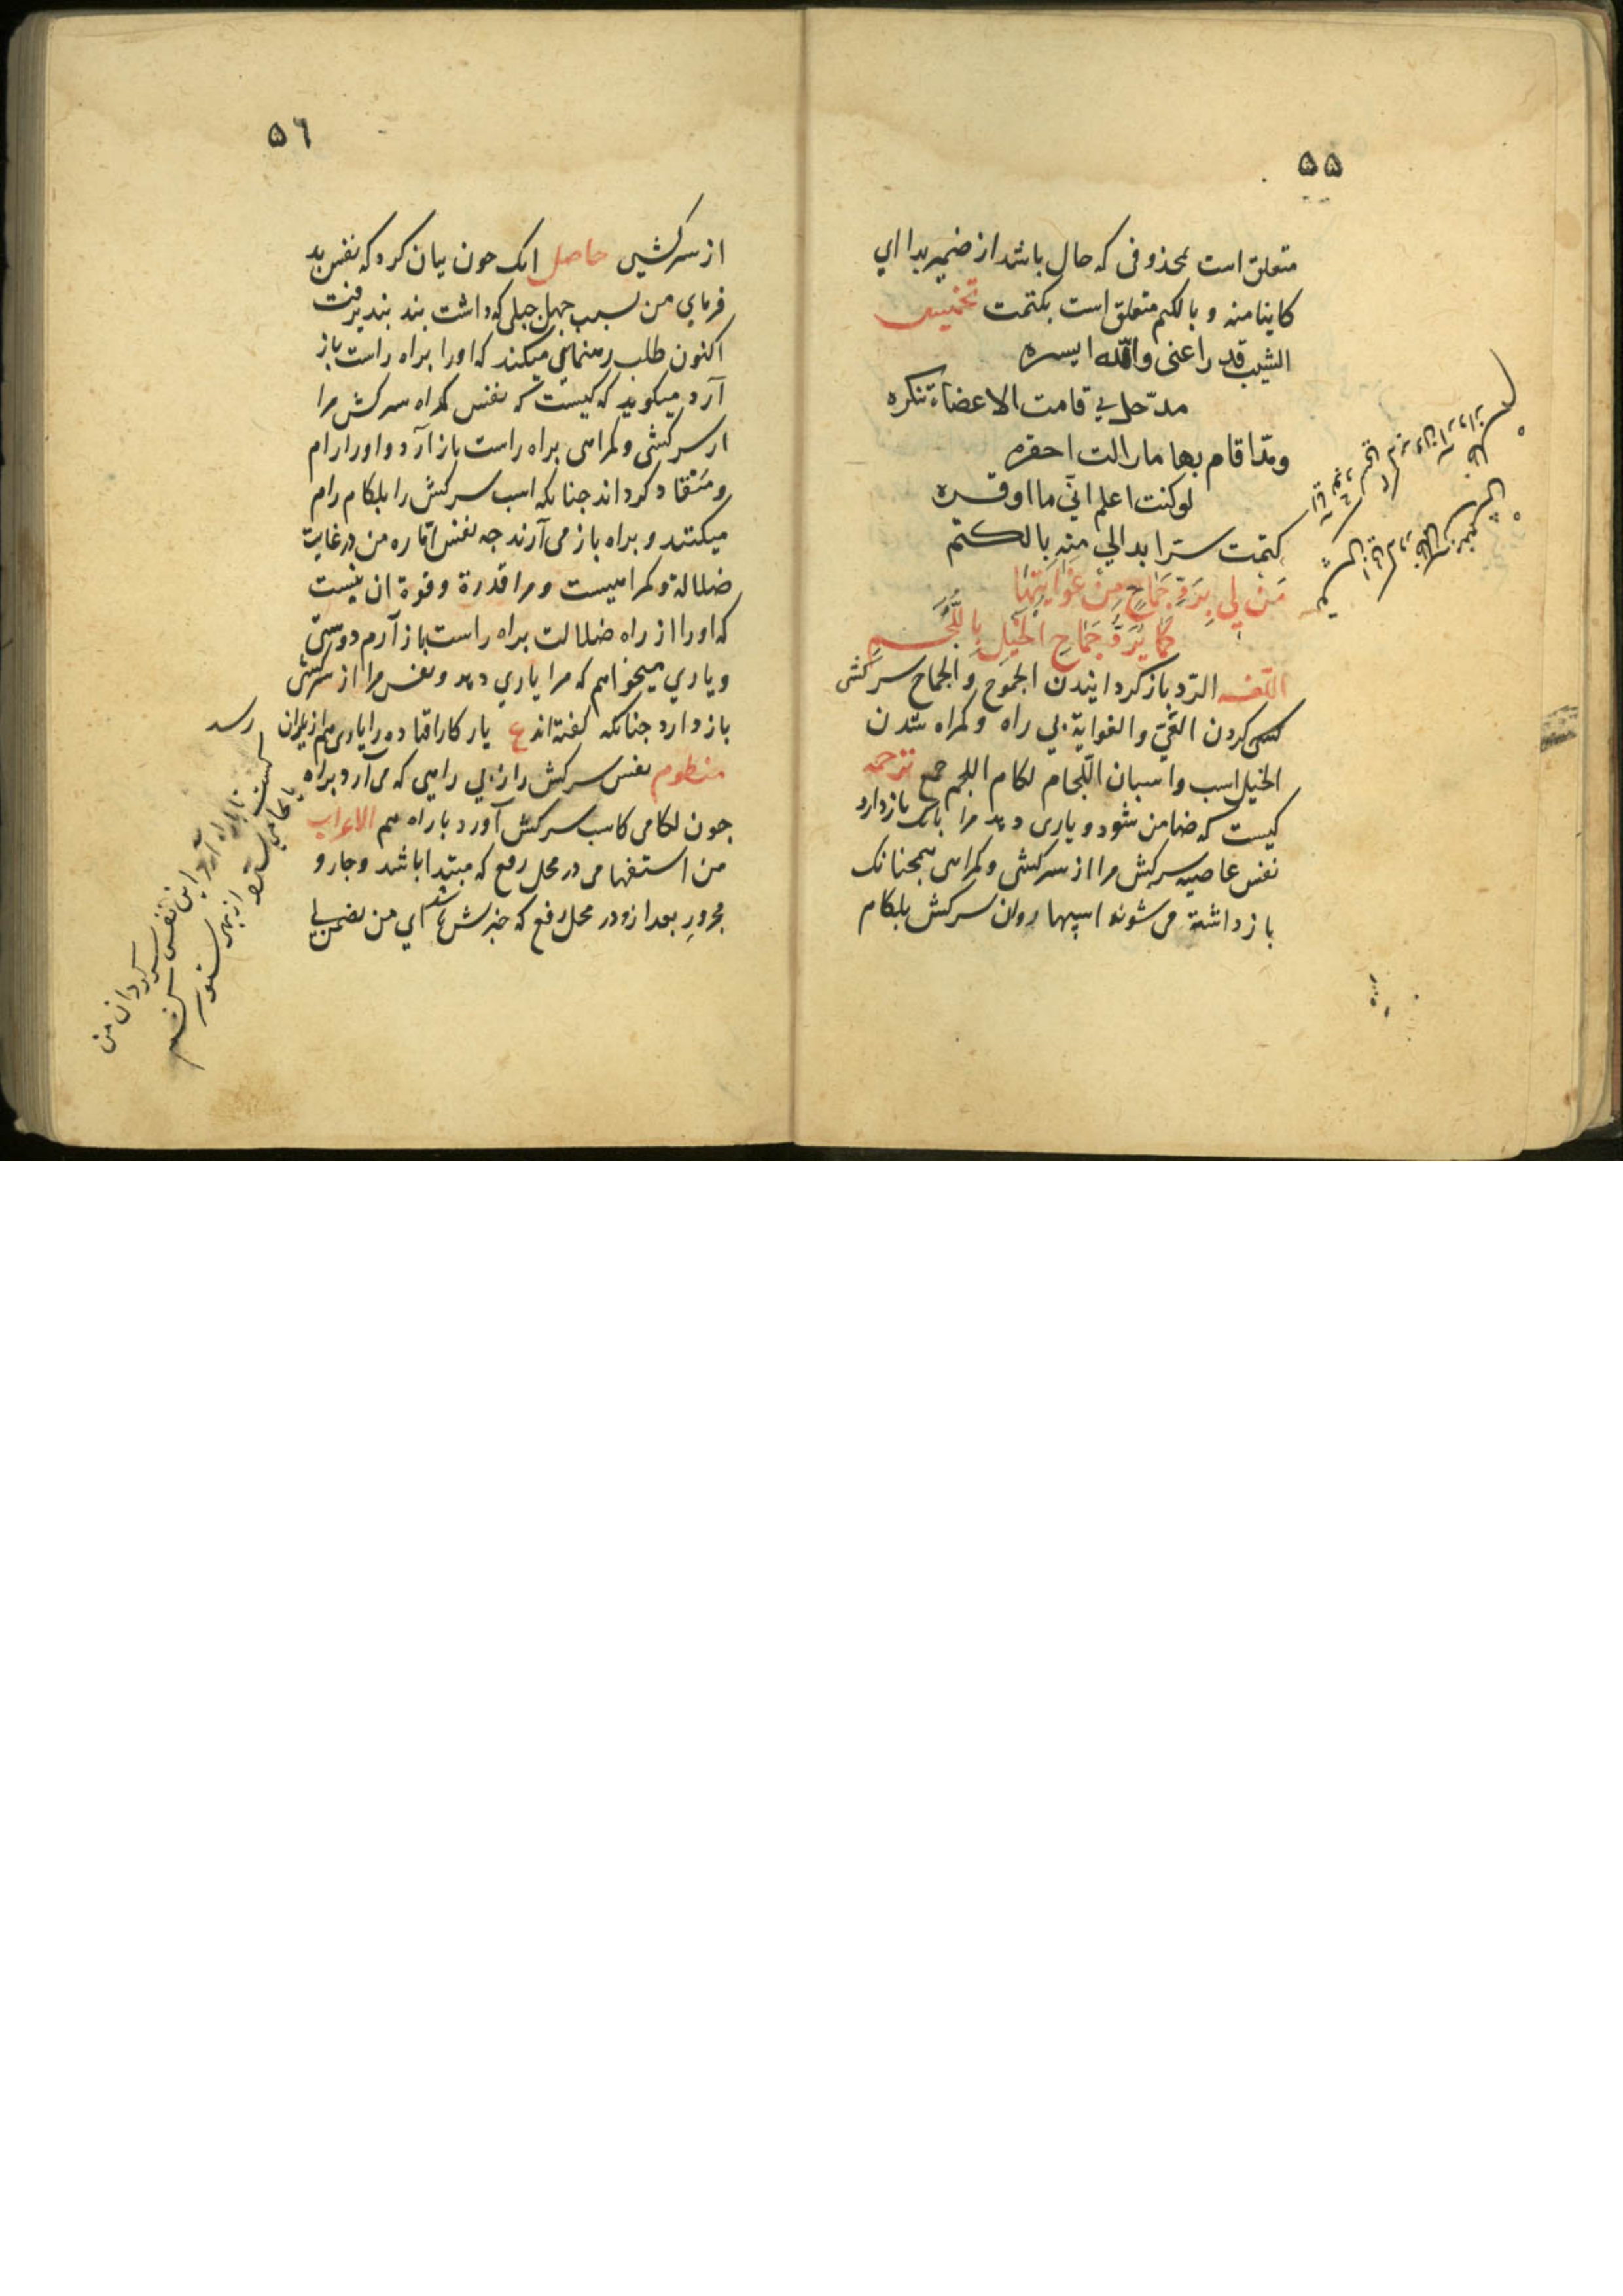 ۵۵
متعلق است بمحذوفی که حال باشد از ضمیر بدا ای
کاینا منه و بالکتم متعلق است بکتمت تخمیس
الشیب قد راعنی والله ایسره
مذ حل في قامت الاعضاء تنکره
و مذ اقام بها مازالت احقره
لو کنت اعلم انّي ما اوقره
کتمت سترا بدالي منه بالکتم
مَنْ لِي بِرَدِّ جِمَاحٍ مِنْ غَوَايَتِهَا
كَمَا يُرَدُّ جِمَاحُ الْخَيْلِ بِاللُّجُمِ
اللغه الرّد باز کردانیدن الجموح و الجماح سرکشی
کردن الغيّ و الغوایة بي راه و کمراه شدن
الخیل اسب و اسبان اللّجام لکام اللجم جمع ترجمه
کیست که ضامن شود و یاری دهد مرا بانک بازدارد
نفس عاصیه سرکش مرا از سرکشی و کمراهی همچنانک
باز داشته می شوند اسپها روان سرکش بلکام
۵٦
از سرکشی حاصل انک چون بیان کرد که نفس بد
فرماي من بسبب جهل جبلی که داشت بند نپذیرفت
اکنون طلب رهنمایی میکند که او را براه راست باز
آرد میکوید که کیست که نفس کمراه سرکش مرا
از سرکشی و کمراهی براه راست باز آرد و او را رام
و منقاد کرداند چنانکه اسب سرکش را بلکام رام
میکنند و براه باز می آرند چه نفس امّاره من در غایت
ضلالة و کمراهیست و مرا قدرة و قوة ان نیست
که او را از راه ضلالت براه راست باز آرم دوستی
و یاري میخواهم که مرا یاري دهد و نفس مرا از سرکشی
باز دارد چنانکه کفته اند ع یار کار افتاده را یاری هم از یاران رسد
منظوم نفس سرکش را ز بي راهی که می آرد براه
چون لکامی کاسب سرکش آورد با راه هم الاعراب
من استفهامی در محل رفع که مبتدا باشد و جار و
مجرورِ بعد ازو در محل رفع که خبرش باشد اي من یضمن لي
کیست تا با راه آرد این نفس سرکردان من